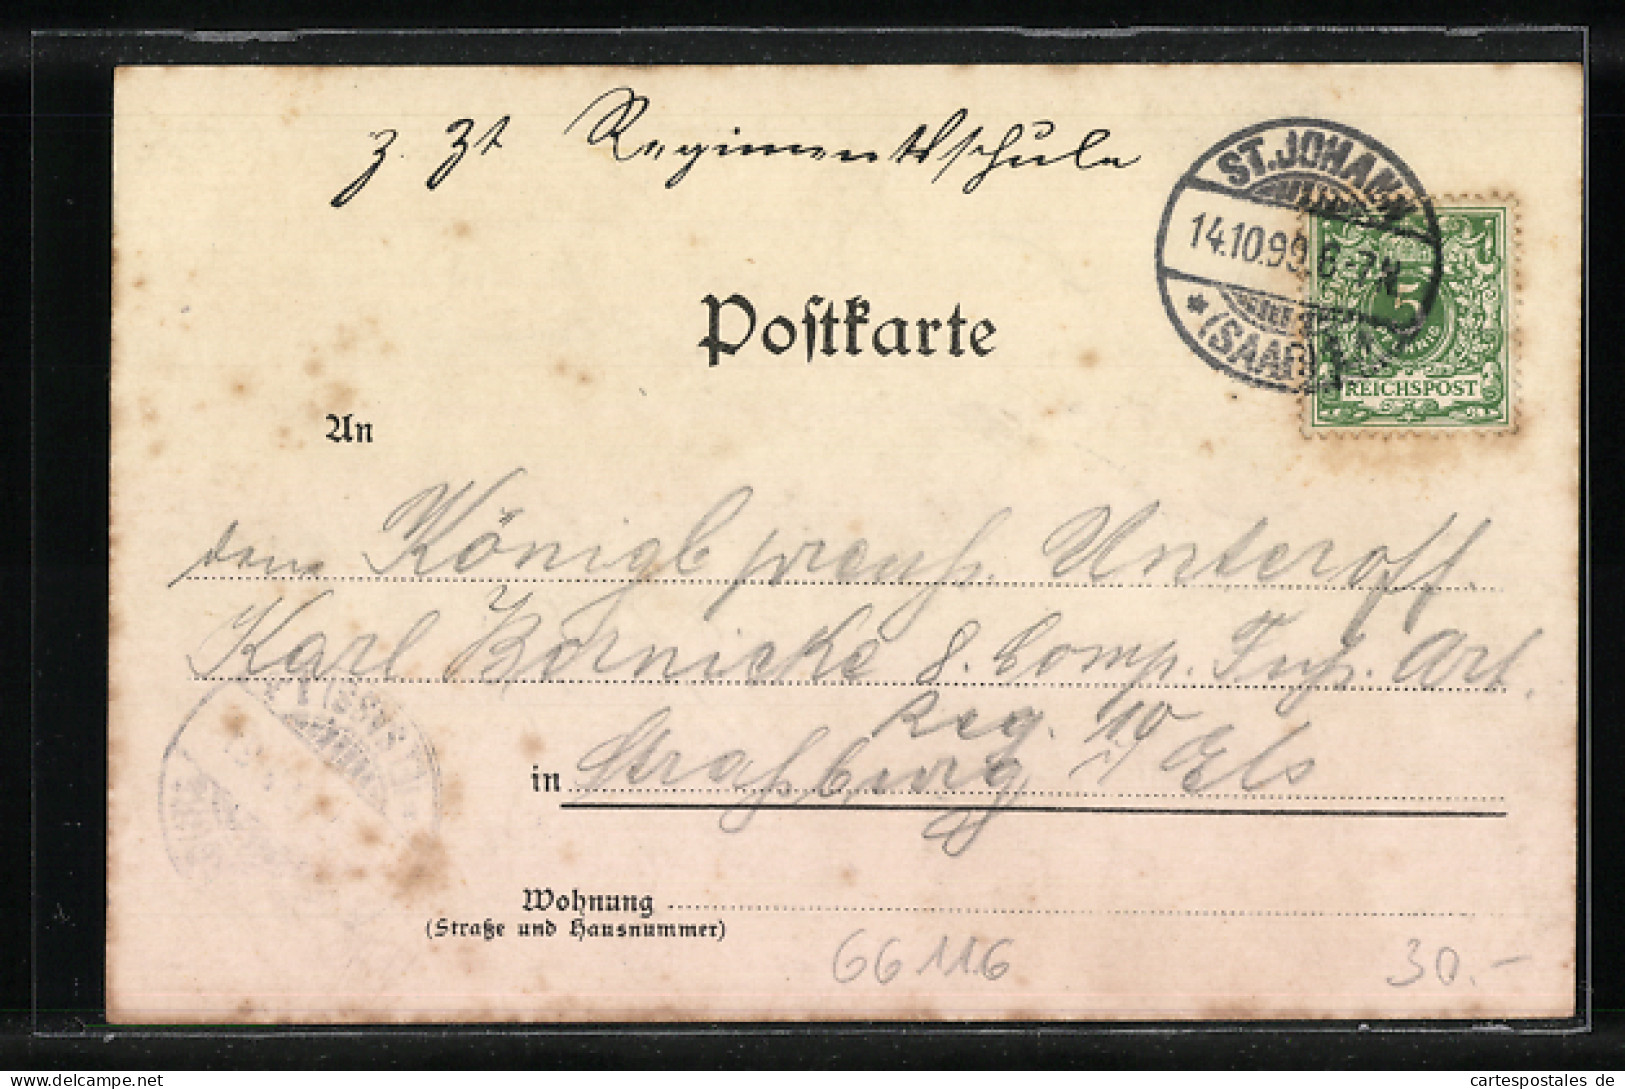 z. Zt Regimentsschule
ST. JOHANN
14.10.99. 6-7N
* (SAAR)
5
REICHSPOST
Postkarte
An
dem Königl preuß. Unteroff.
Karl Bornicke 8. Comp. Fuß. Art.
Reg. 10
in Straßburg i/ Els
Wohnung
(Straße und Hausnummer)
66116
30.-
cartespostales de